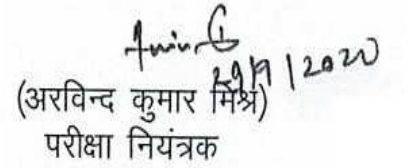 29/9/2020
(अरविन्द कुमार मिश्र)
परीक्षा नियंत्रक